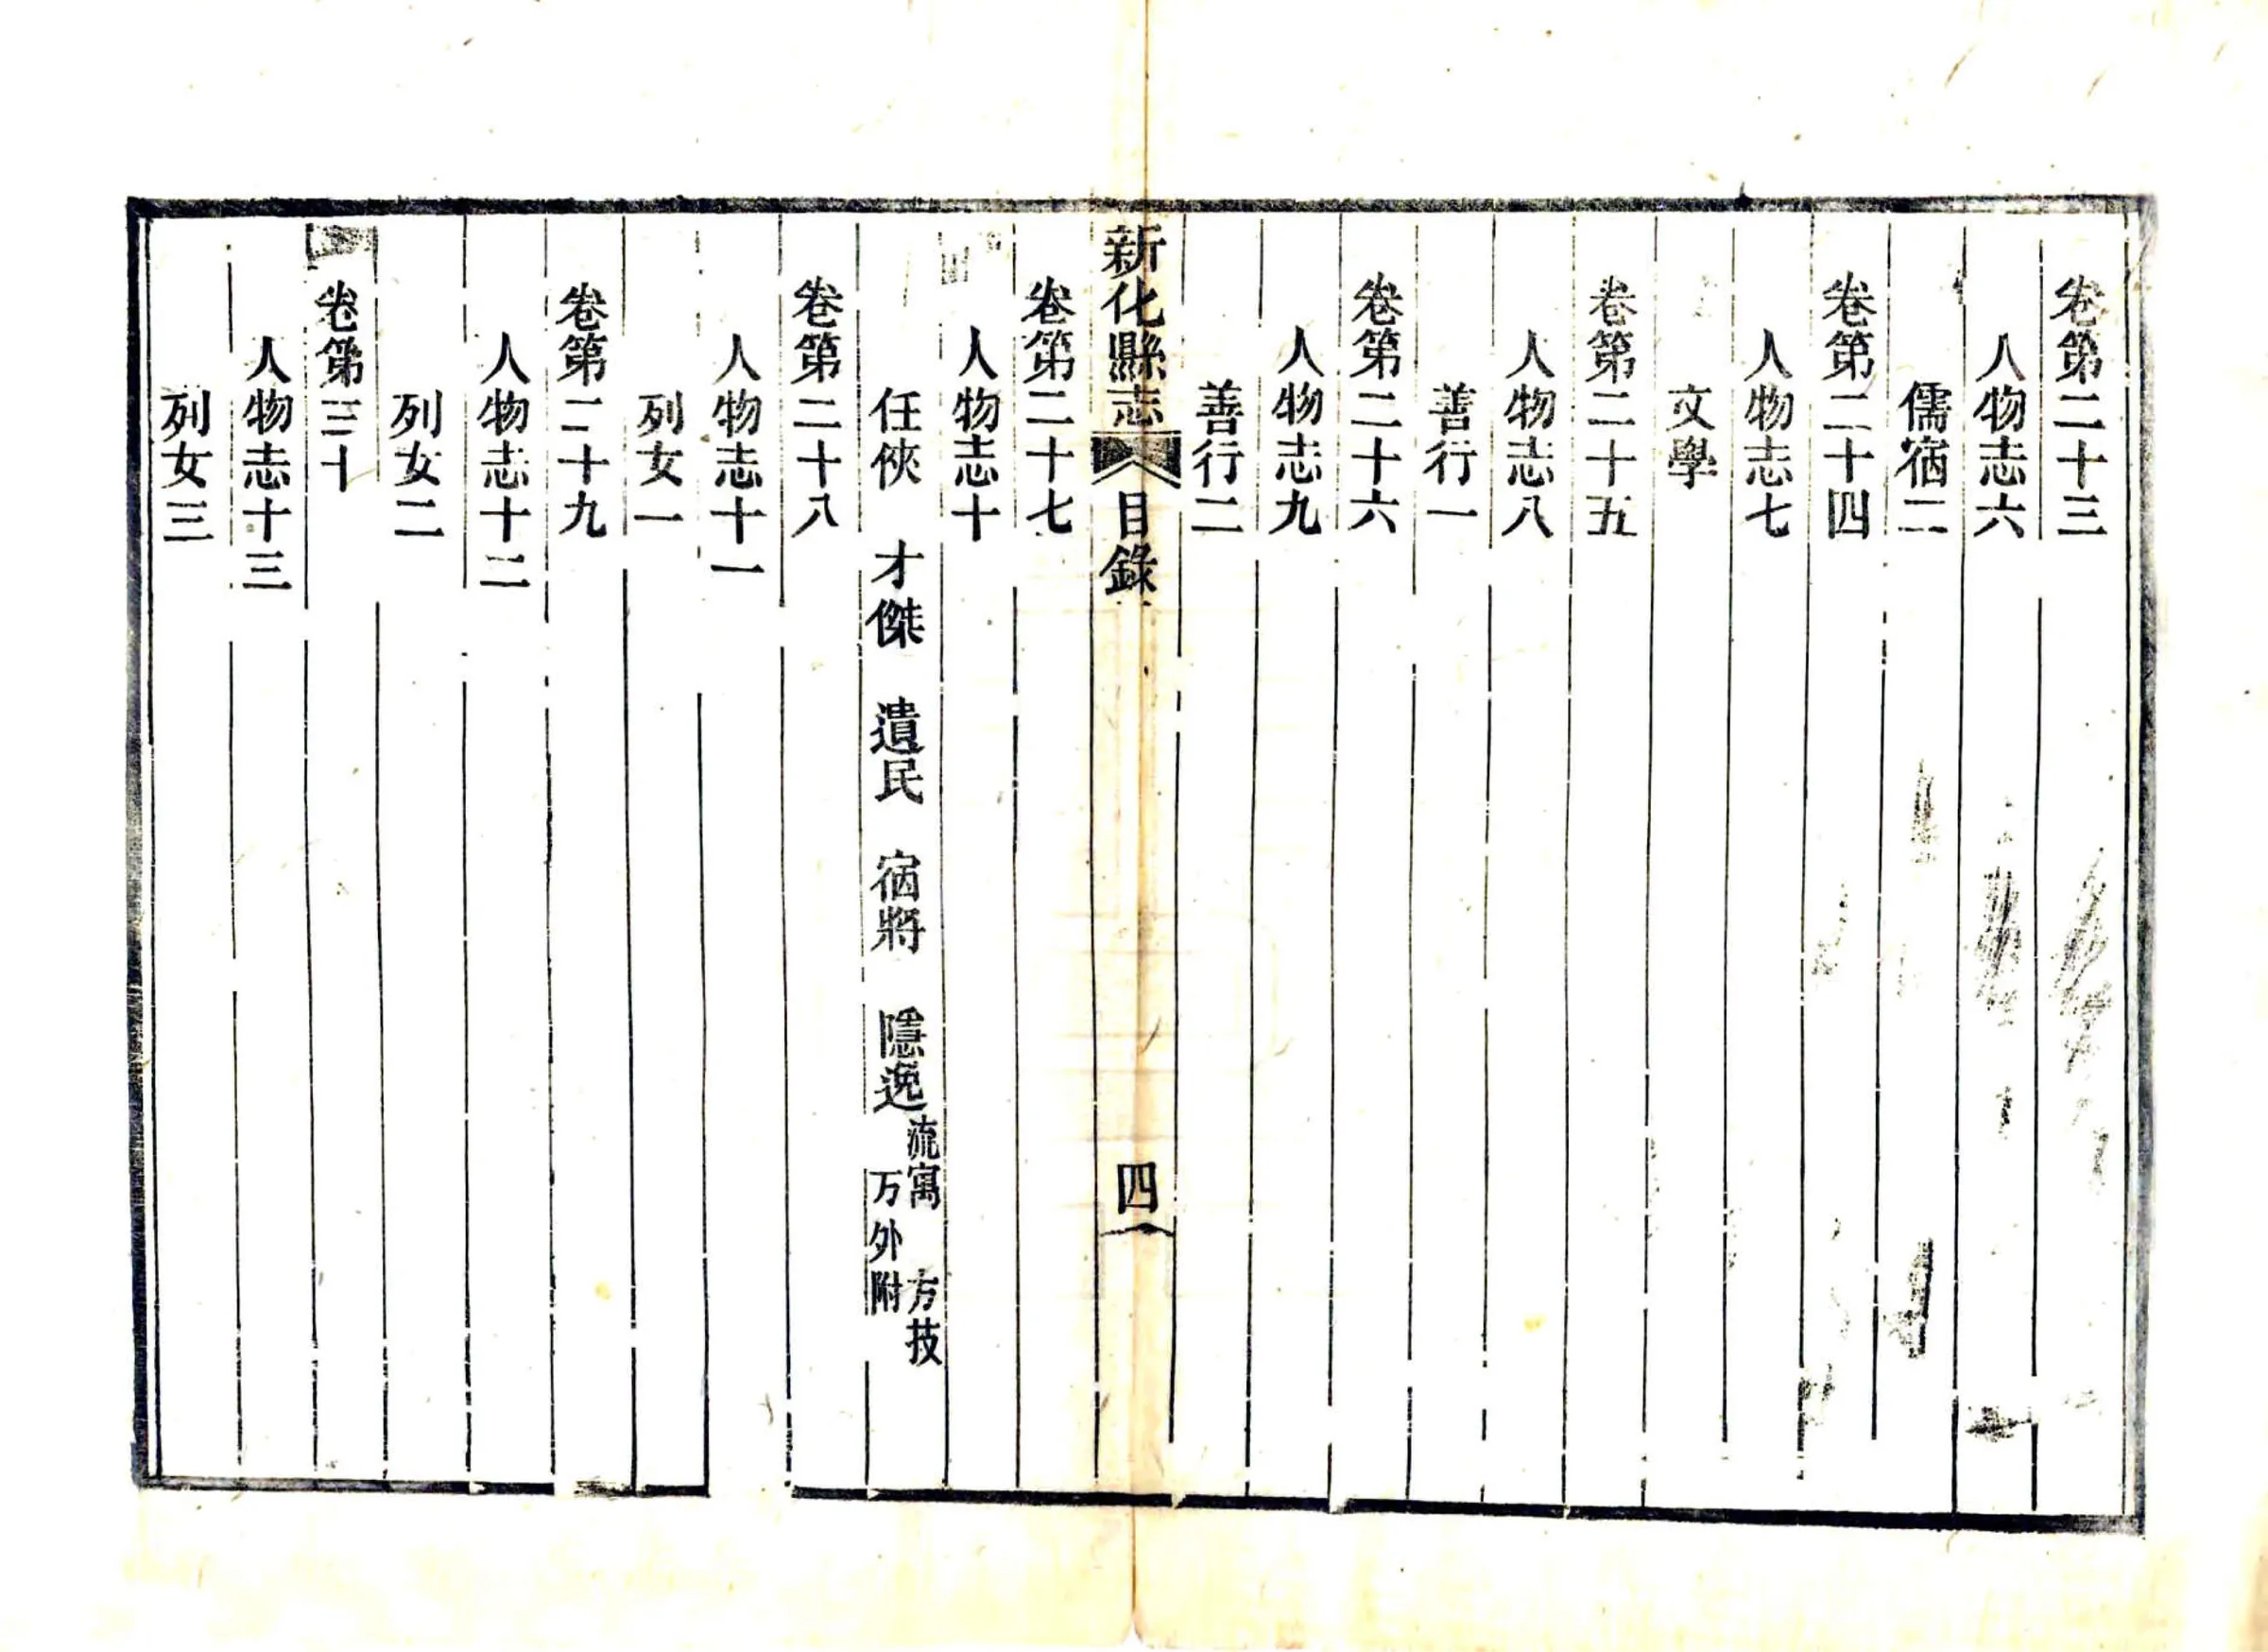 卷第二十三
人物志六
儒宿二
卷第二十四
人物志七
文學
卷第二十五
人物志八
善行一
卷第二十六
人物志九
善行二
新化縣志 目錄 四
卷第二十七
人物志十
任俠 才傑 遺民 宿將 隱逸 流寓 方技 方外附
卷第二十八
人物志十一
列女一
卷第二十九
人物志十二
列女二
卷第三十
人物志十三
列女三